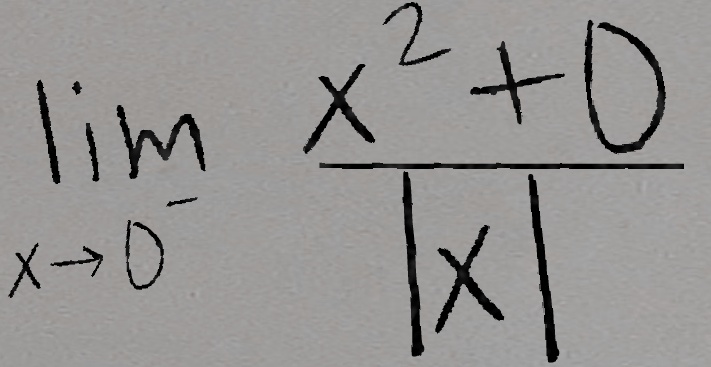 lim x→0⁻ (x² + 0) / |x|